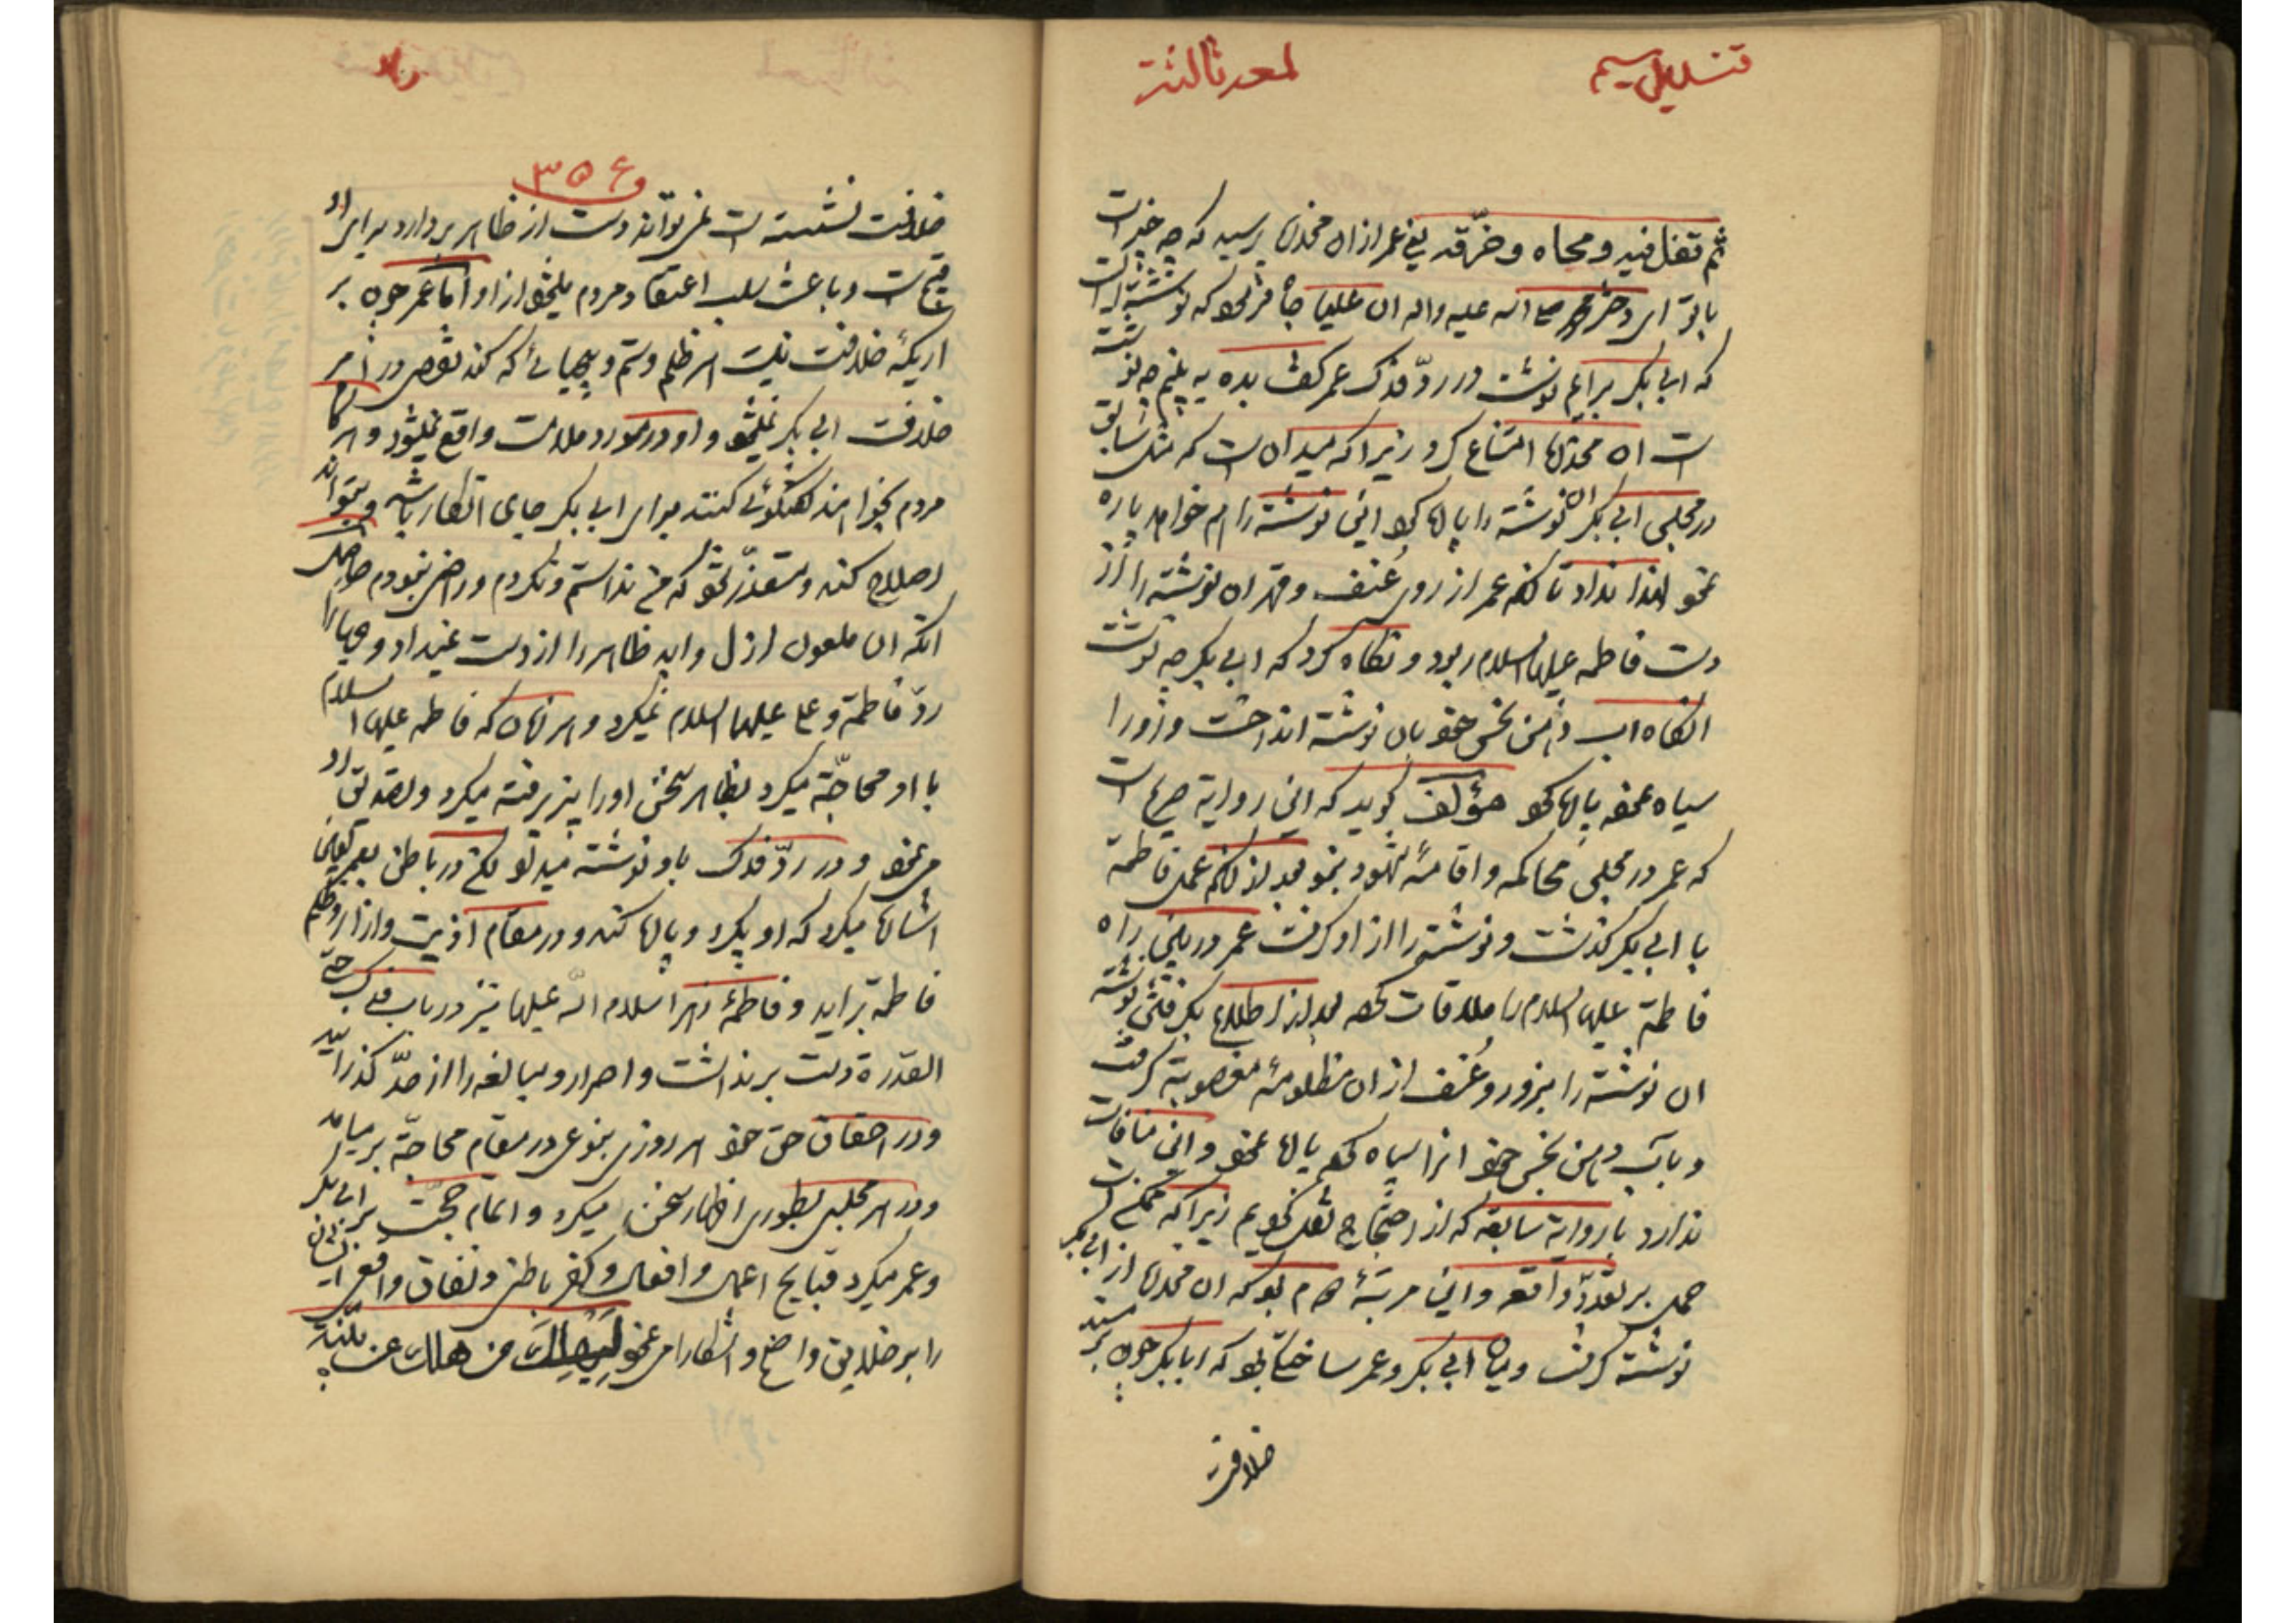 لمعه ثالثه
ثم تفل فیه و محاه و خرّقه یعنی عمر از ان مخدره پرسید که چه چیز است
با تو ای دختر محمد صلی الله علیه واله ان علیا جاه فرمود که نوشته ایست
که ابی بکر برایم نوشت در ردّ فدک عمر گفت بده به بینم چه نوشته
است ان مخدره امتناع کرد زیرا که میدانست که مثل سابق
در مجلس ابی بکر ان نوشته را پاره کرد این نوشته را هم خواهد پاره
نمود لهذا نداد تا انکه عمر از روی عُنف و قهر ان نوشته را از
دست فاطمه علیها السلام ربود و نگاه کرد که ابی بکر چه نوشت
انگاه اب دهن نجس خود بان نوشته انداخت و زورا
سیاه نموده پاره کرد مؤلف گوید که این روایة صریح است
که عمر در مجلس محاکمه و اقامهٔ شهود نبود بعد از انکه عمل فاطمة
با ابی بکر گذشت و نوشته را از او گرفت عمر در بین راه
فاطمة علیها السلام را ملاقات کرده بعد از اطلاع بگرفتن نوشته
ان نوشته را بزور و عُنف از ان مظلومهٔ مغصوبة گرفت
و باب دهن نجس خود انرا سیاه کرده پاره نمود و این منافات
ندارد با روایة سابقه که از احتجاج نقل کردیم زیرا که ممکن است
حمل بر تعدّد واقعه و این مرتبهٔ دوم بود که ان مخدره از ابی بکر
نوشته گرفت و میان ابی بکر و عمر ساختگی بود که ابا بکر چون بر مسند
خلافت
۳۵۶
خلافت نشسته است نمی تواند دست از ظاهر بردارد برای او
قبیح است و باعث سلب اعتقاد مردم میشود از او اما عمر چون بر
اریکهٔ خلافت نیست هر ظلم و ستم و بیحیائی که کند نقص در امر
خلافت ابی بکر نمیشود و او در مورد ملامت واقع نمیشود و هرگاه
مردم بخواهند گفتگوئی کنند برای ابی بکر جای انکار باشد و بتواند
اصلاح کند و متعذّر شود که من ندانستم و نکردم و راضی نبودم حاصل
انکه ان ملعون ازل و ابد ظاهر را از دست نمیداد و حیا را
ردّ فاطمة و علی علیهما السلام نمیکرد و هر زمان که فاطمه علیها السلام
با او محاجّة میکرد بظاهر سخن او را پذیرفته میکرد و تصدیق او
می نمود و در ردّ فدک باو نوشته میداد لکن در باطن بعمر لعین
اشاره میکرد که او بگیرد و پاره کند و در مقام اذیت و ازار و ظلم
فاطمة براید و فاطمهٔ زهرا سلام الله علیها نیز در باب فدک حتی
القدرة دست برنداشت و اصرار و مبالغه را از حدّ گذرانید
و در احقاق حق خود هر روزی بنوعی در مقام محاجّة برمیامد
و در هر مجلسی بطوری اظهار سخن میکرد و اتمام حجّت بر ابی بکر
و عمر میکرد قبایح اعمال و افعال و کفر باطنی و نفاق واقعی ایشان
را بر خلایق واضح و اشکارا می نمود لیهلک من هلک عن بیّنة